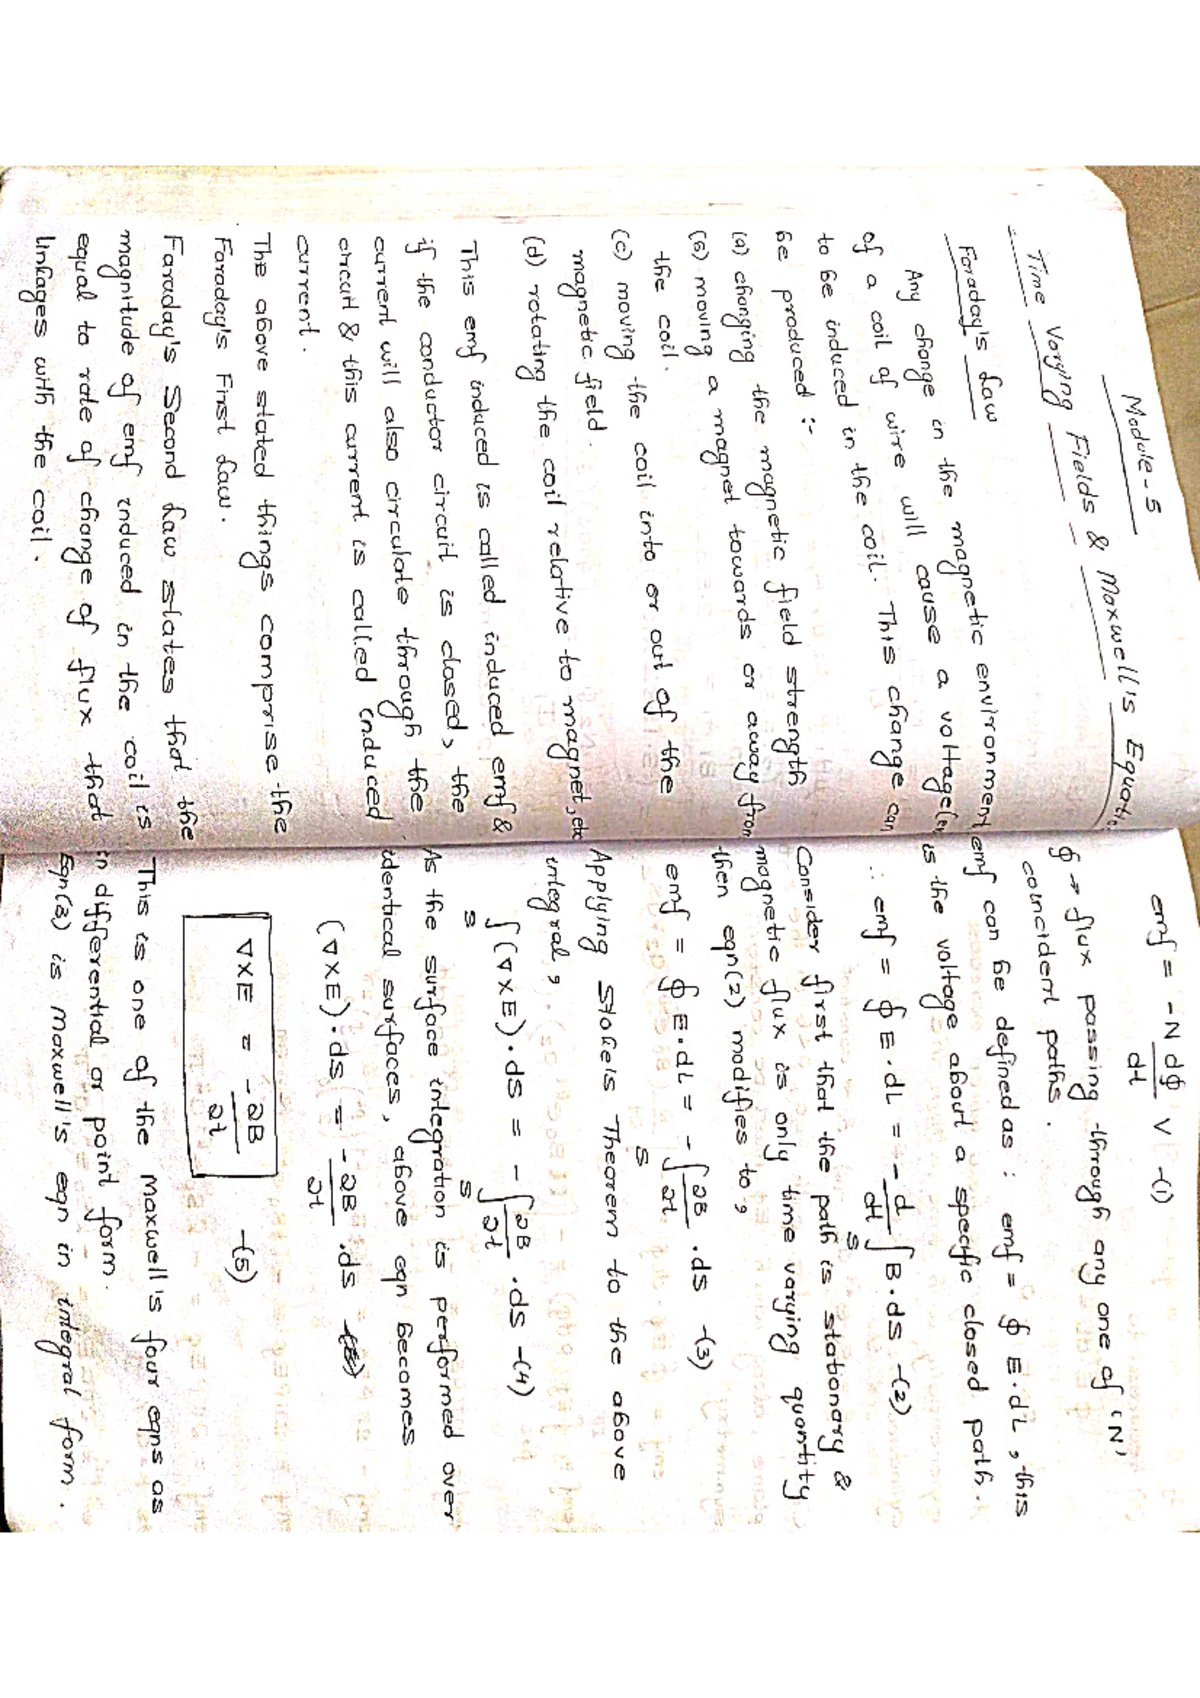 Module - 5
Time Varying Fields & Maxwell's Equatio
Faraday's Law
Any change in the magnetic environment
of a coil of wire will cause a voltage(emf)
to be induced in the coil. This change can
be produced :-
(a) changing the magnetic field strength
(b) moving a magnet towards or away from
the coil.
(c) moving the coil into or out of the
magnetic field.
(d) rotating the coil relative to magnet, etc
This emf induced is called induced emf &
if the conductor circuit is closed, the
current will also circulate through the
circuit & this current is called induced
current.
The above stated things comprise the
Faraday's First Law.
Faraday's Second Law states that the
magnitude of emf induced in the coil is
equal to rate of change of flux that
linkages with the coil.
emf = -N dϕ/dt V -(1)
ϕ → flux passing through any one of 'N'
coincident paths.
emf can be defined as : emf = ∮ E.dL, this
is the voltage about a specific closed path.
∴ emf = ∮ E.dL = -d/dt ∫s B.ds -(2)
Consider first that the path is stationary &
magnetic flux is only time varying quantity
then eqn(2) modifies to,
emf = ∮ E.dL = -∫s ∂B/∂t .ds -(3)
Applying Stoke's Theorem to the above
integral,
∫s (∇×E).ds = -∫s ∂B/∂t .ds -(4)
As the surface integration is performed over
identical surfaces, above eqn becomes
(∇×E).ds = -∂B/∂t .ds
∇×E = -∂B/∂t -(5)
This is one of the maxwell's four eqns as
in differential or point form.
Eqn(3) is maxwell's eqn in integral form.